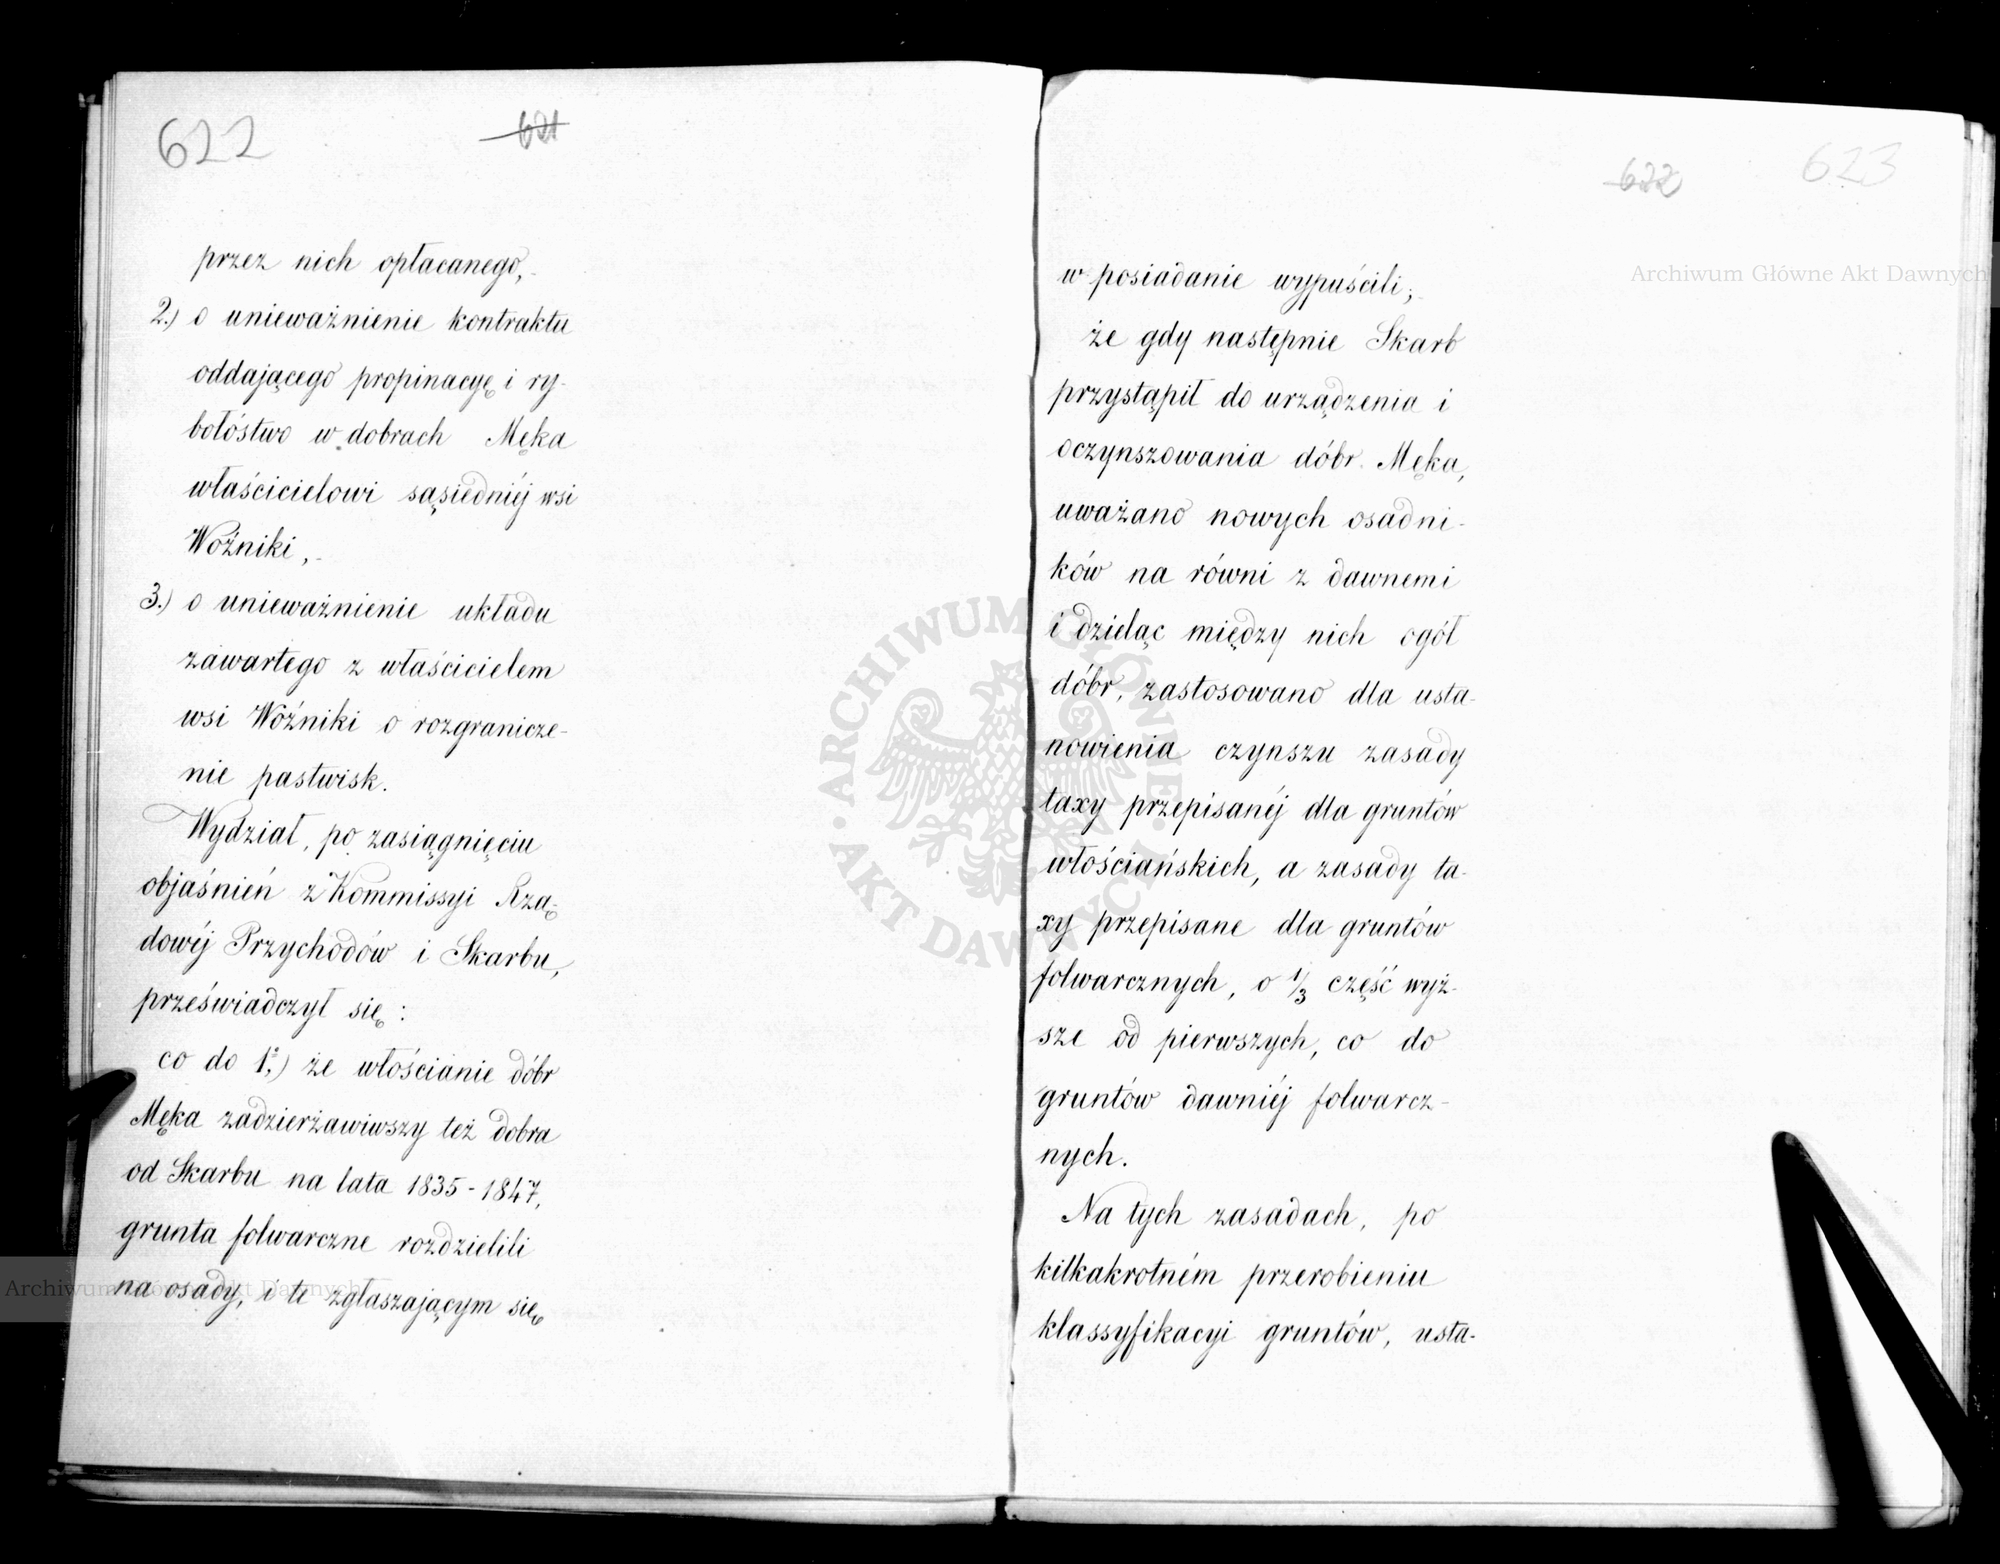 622
621
przez nich opłacanego,
2.) o unieważnienie kontraktu
oddającego propinacyę i ry-
bołóstwo w dobrach Męka
właścicielowi sąsiedniéj wsi
Woźniki,
3.) o unieważnienie układu
zawartego z właścicielem
wsi Woźniki o rozgranicze-
nie pastwisk.
Wydział, po zasiągnięciu
objaśnień z Kommissyi Rzą-
dowéj Przychodów i Skarbu,
przeświadczył się:
co do 1.) że włościanie dóbr
Męka zadzierżawiwszy też dobra
od Skarbu na lata 1835-1847,
grunta folwarczne rozdzielili
na osady, i te zgłaszającym się
622
623
w posiadanie wypuścili;
że gdy następnie Skarb
przystąpił do urządzenia i
oczynszowania dóbr Męka,
uważano nowych osadni-
ków na równi z dawnemi
i dzieląc między nich ogół
dóbr, zastosowano dla usta-
nowienia czynszu zasady
taxy przepisanéj dla gruntów
włościańskich, a zasady ta-
xy przepisane dla gruntów
folwarcznych, o 1/3 część wyż-
sze od pierwszych, co do
gruntów dawniéj folwarcz-
nych.
Na tych zasadach, po
kilkakrotném przerobieniu
klassyfikacyi gruntów, usta-
Archiwum Główne Akt Dawnych
ARCHIWUM GŁÓWNE
AKT DAWNYCH
Archiwum Główne Akt Dawnych